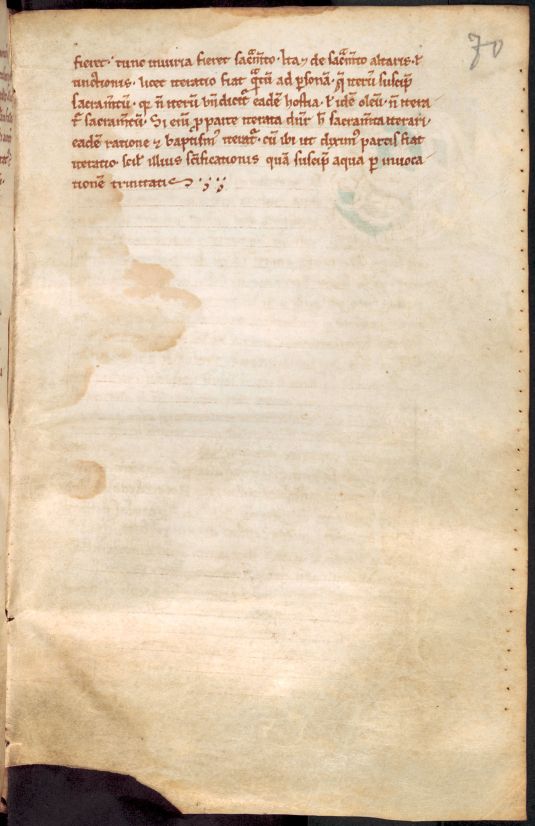 70
fieret · tunc iniuria fieret sac̄am̄to · Ita ⁊ de sac̄am̄to altaris · ł
unctionis · licet iteratio fiat q̄ntū ad p̱sonā · q̄ iterū suscip̄
sacram̄tū · n̄ iterū b̄n̄dicit̄ eadē hostia · ł idē oleū · n̄ itera
t̄ sacram̄tū · Si enī parte iterata dn̄r h̄ sacram̄ta iterari
eadē ratione ⁊ baptism̄ iterat̄ · cū ibi ut dixim̄ partis fiat
iteratio · scil̄ illius sc̄ificationis quā suscip̄ aqua p̱ inuoca
tionē trinitatis · ; ;